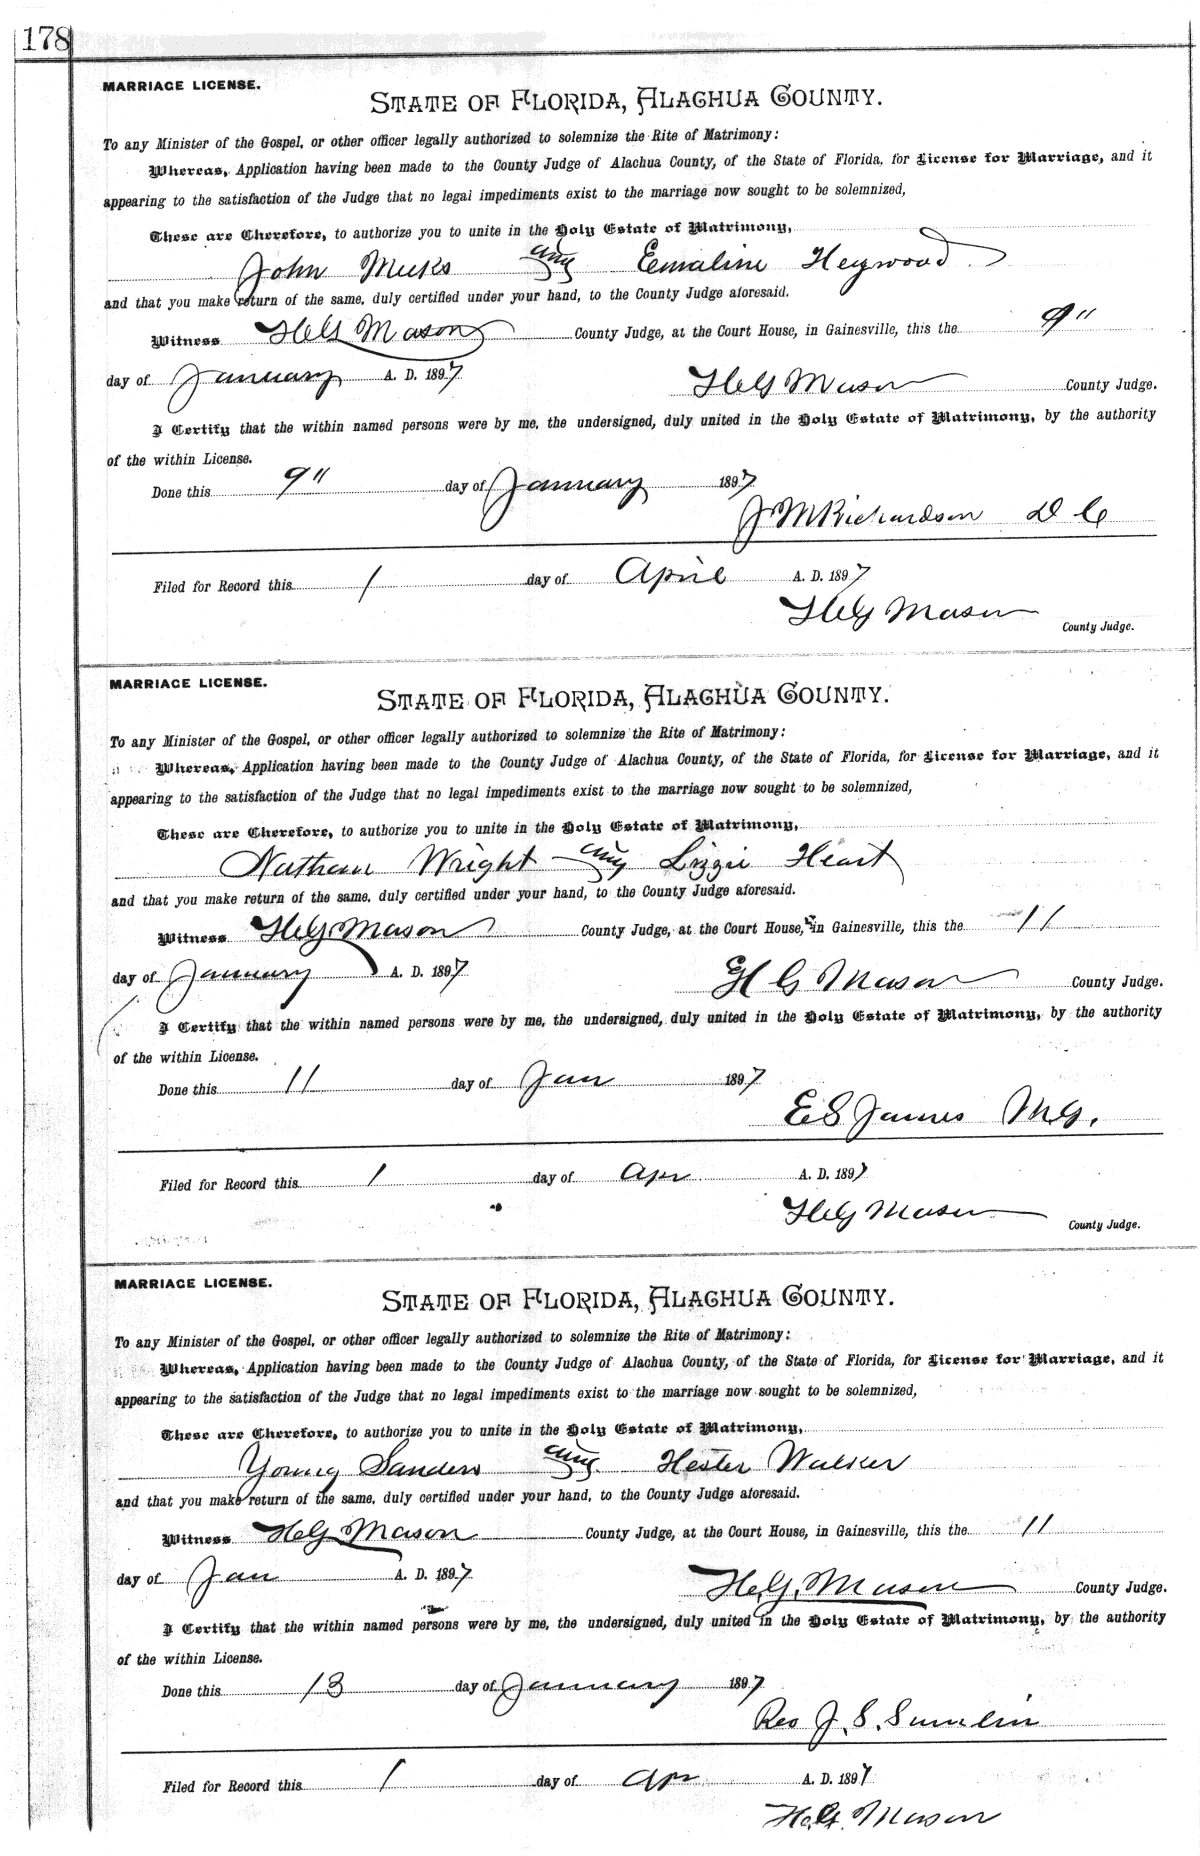 178
MARRIAGE LICENSE.
STATE OF FLORIDA, ALACHUA COUNTY.
To any Minister of the Gospel, or other officer legally authorized to solemnize the Rite of Matrimony:
Whereas, Application having been made to the County Judge of Alachua County, of the State of Florida, for License for Marriage, and it
appearing to the satisfaction of the Judge that no legal impediments exist to the marriage now sought to be solemnized,
These are Therefore, to authorize you to unite in the Holy Estate of Matrimony,
John Meeks and Emaline Heywood
and that you make return of the same, duly certified under your hand, to the County Judge aforesaid.
Witness H G Mason County Judge, at the Court House, in Gainesville, this the 9"
day of January A. D. 1897 H G Mason County Judge.
I Certify that the within named persons were by me, the undersigned, duly united in the Holy Estate of Matrimony, by the authority
of the within License.
Done this 9" day of January 1897
J M Richardson D C
Filed for Record this 1 day of April A. D. 1897
H G Mason
County Judge.
MARRIAGE LICENSE.
STATE OF FLORIDA, ALACHUA COUNTY.
To any Minister of the Gospel, or other officer legally authorized to solemnize the Rite of Matrimony:
Whereas, Application having been made to the County Judge of Alachua County, of the State of Florida, for License for Marriage, and it
appearing to the satisfaction of the Judge that no legal impediments exist to the marriage now sought to be solemnized,
These are Therefore, to authorize you to unite in the Holy Estate of Matrimony,
Nathan Wright and Lizzie Heart
and that you make return of the same, duly certified under your hand, to the County Judge aforesaid.
Witness H G Mason County Judge, at the Court House, in Gainesville, this the 11
day of January A. D. 1897 H G Mason County Judge.
I Certify that the within named persons were by me, the undersigned, duly united in the Holy Estate of Matrimony, by the authority
of the within License.
Done this 11 day of Jan 1897
E S James M.G.
Filed for Record this 1 day of Apr A. D. 1897
H G Mason
County Judge.
MARRIAGE LICENSE.
STATE OF FLORIDA, ALACHUA COUNTY.
To any Minister of the Gospel, or other officer legally authorized to solemnize the Rite of Matrimony:
Whereas, Application having been made to the County Judge of Alachua County, of the State of Florida, for License for Marriage, and it
appearing to the satisfaction of the Judge that no legal impediments exist to the marriage now sought to be solemnized,
These are Therefore, to authorize you to unite in the Holy Estate of Matrimony,
Young Sanders and Hester Walker
and that you make return of the same, duly certified under your hand, to the County Judge aforesaid.
Witness H G Mason County Judge, at the Court House, in Gainesville, this the 11
day of Jan A. D. 1897 H. G. Mason County Judge.
I Certify that the within named persons were by me, the undersigned, duly united in the Holy Estate of Matrimony, by the authority
of the within License.
Done this 13 day of January 1897
Rev J. S. Sumlin
Filed for Record this 1 day of Apr A. D. 1897
H. G. Mason